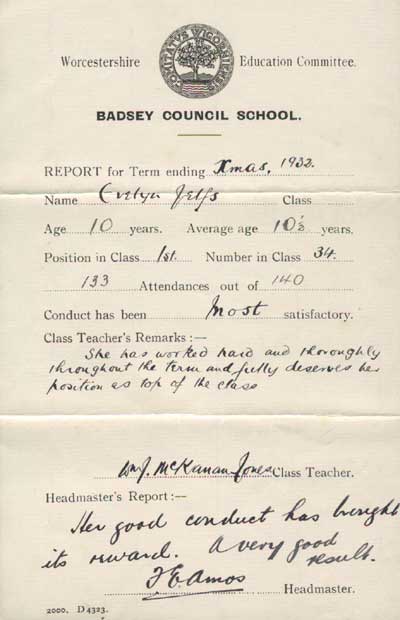 COMITATVS WIGORNIENSIS
Worcestershire Education Committee.
BADSEY COUNCIL SCHOOL.
REPORT for Term ending Xmas, 1932.
Name Evelyn Jelfs Class
Age 10 years. Average age years.
Position in Class 1st. Number in Class 34.
133 Attendances out of 140
Conduct has been Most satisfactory.
Class Teacher's Remarks :—
She has worked hard and thoroughly
throughout the term and fully deserves her
position as top of the class
McKanan Jones Class Teacher.
Headmaster's Report :—
Her good conduct has brought
its reward. A very good
result.
Amos Headmaster.
2000. D4323.